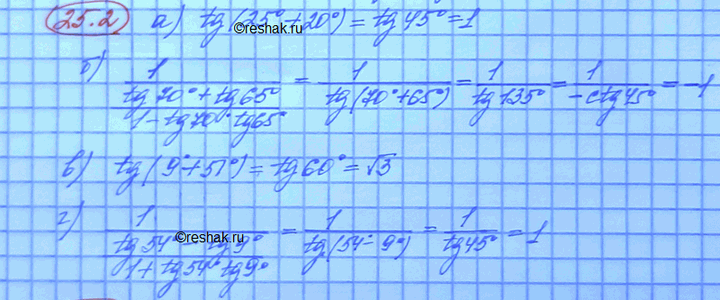 25.2 а) tg(25°+20°) = tg 45° = 1
б) 1/((tg 70° + tg 65°)/(1 - tg 70° tg 65°)) = 1/tg(70°+65°) = 1/tg 135° = 1/(-ctg 45°) = -1
в) tg(9°+51°) = tg 60° = √3
г) 1/((tg 54° - tg 9°)/(1 + tg 54° tg 9°)) = 1/tg(54°-9°) = 1/tg 45° = 1
©reshak.ru
©reshak.ru